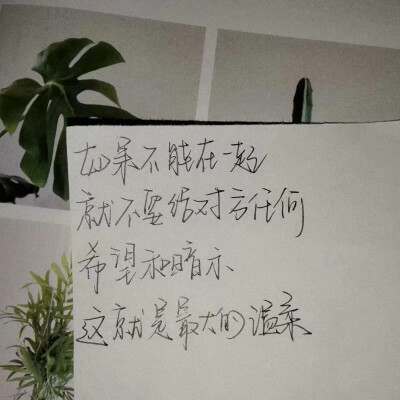 如果不能在一起
就不要给对方任何
希望和暗示
这就是最大的温柔